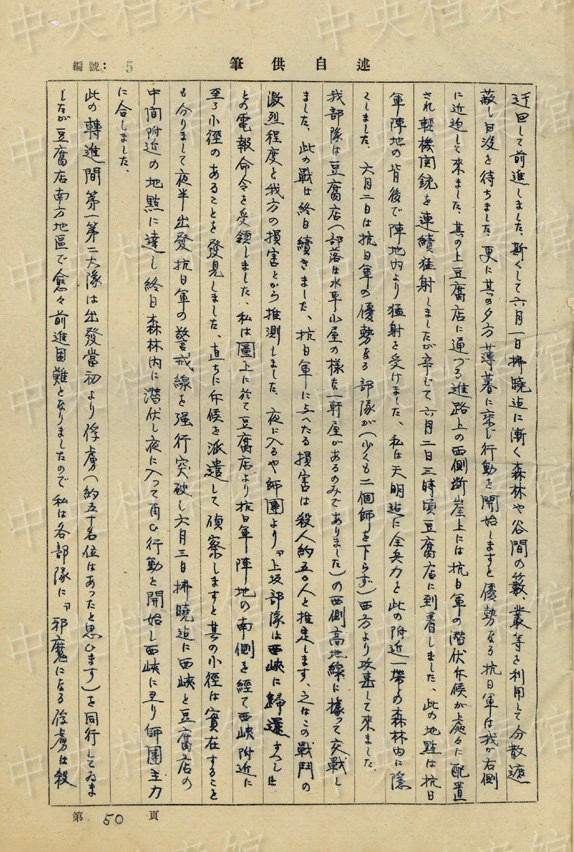 編號: 5
筆供自述
迂回して前進しました、斯くして六月一日拂曉迄に漸く森林や谷間の籔、叢等を利用して分散遮
蔽し日没を待ちました、更に其の夕方薄暮に乘じ行動を開始しますと優勢なる抗日軍は我が右側
に近迫して來ました、其の上豆腐店に通ずる進路上の西側斷崖上には抗日軍の潜伏斥候が處々に配置
され輕機関銃を連續猛射しましたが辛じて六月二日三時頃豆腐店に到着しました、此の地點は抗日
軍陣地の背後で陣地内より猛射を受けました、私は天明迄に全兵力と此の附近一帶の森林内に隱
くしました、六月二日は抗日軍の優勢なる部隊が(少くも二個師を下らず)西方より攻甚して來ました、
我部隊は豆腐店(部落は水車小屋の樣な一軒屋があるのみでありました)の西側高地線に據って交戰し
ました、此の戰は終日續きました、抗日軍に与へたる損害は殺人的五〇人と推定します、之はこの戰鬥の
激烈程度と我方の損害とから推測しました、夜に入るや師團より『上坂部隊は西峽に歸還すべし』
との電報命令を受領しました、私は圖上に於て豆腐店より抗日軍陣地の南側を經て西峽附近に
至る小徑のあることを發見しました、直ちに斥候を派遣して偵察しますと其の小徑は實在すること
も分りまして夜半出發抗日軍の警戒線を强行突破し六月三日拂曉迄に西峽と豆腐店の
中間附近の地點に達し終日森林内に潜伏し夜に入って再び行動を開始し西峽に至り師團主力
に合しました、
此の轉進間第一第二大隊は出發當初より俘虜(約五十名位はあったと思ひます)を同行してゐま
したが豆腐店南方地區で愈々前進困難となりましたので私は各部隊に『邪魔になる俘虜は殺
第 50 頁
中央档案馆